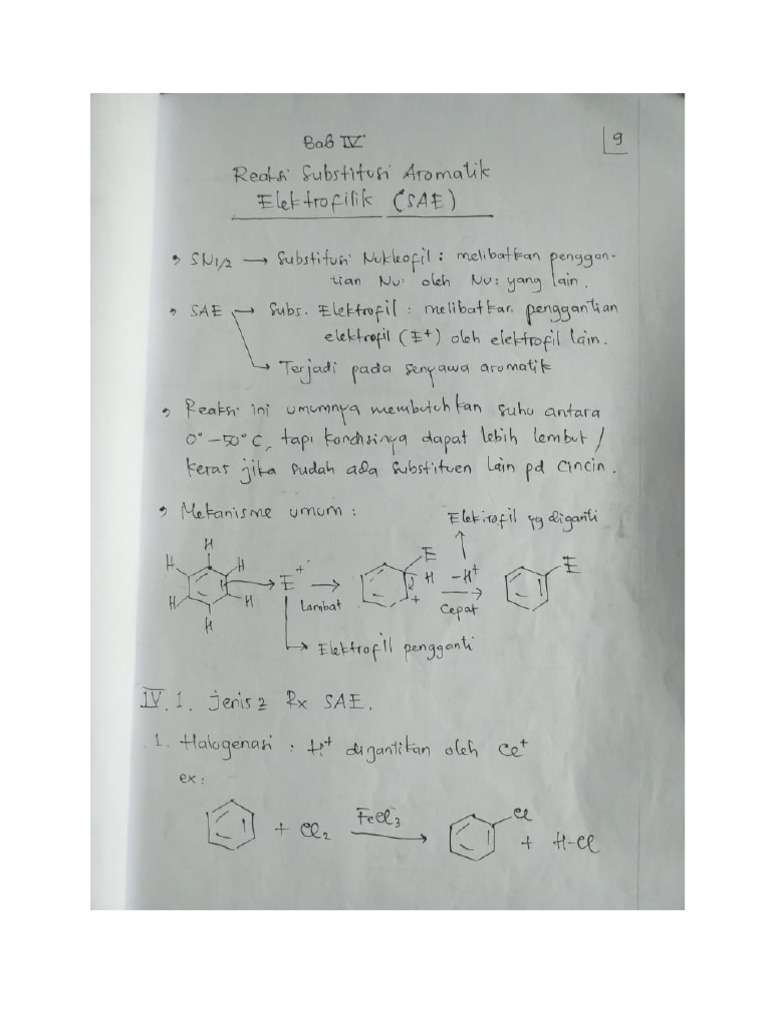 Bab IV
9
Reaksi Substitusi Aromatik
Elektrofilik (SAE)
• SN1/2 → Substitusi Nukleofil : melibatkan penggan-
tian Nu: oleh Nu: yang lain.
• SAE → Subs. Elektrofil : melibatkan penggantian
elektrofil (E+) oleh elektrofil lain.
→ Terjadi pada senyawa aromatik
• Reaksi ini umumnya membutuhkan suhu antara
0° – 50° C, tapi kondisinya dapat lebih lembut /
keras jika sudah ada substituen lain pd cincin.
• Mekanisme umum :
Elektrofil yg diganti
H
H H E E
E+ → H -H+ →
H H Lambat + Cepat
H
→ Elektrofil pengganti
IV. 1. Jenis2 Rx SAE.
1. Halogenasi : H+ digantikan oleh Cl+
ex:
+ Cl2 FeCl3 → Cl
+ H-Cl